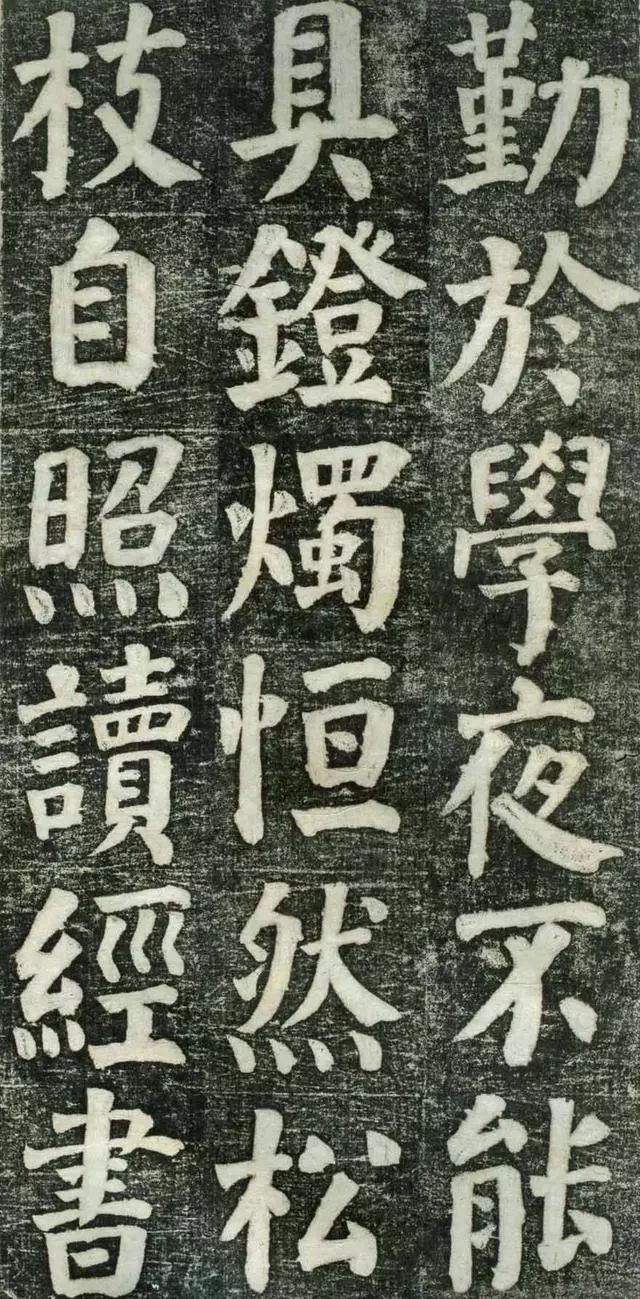 勤於學夜不能
具鐙燭恒然松
枝自照讀經書